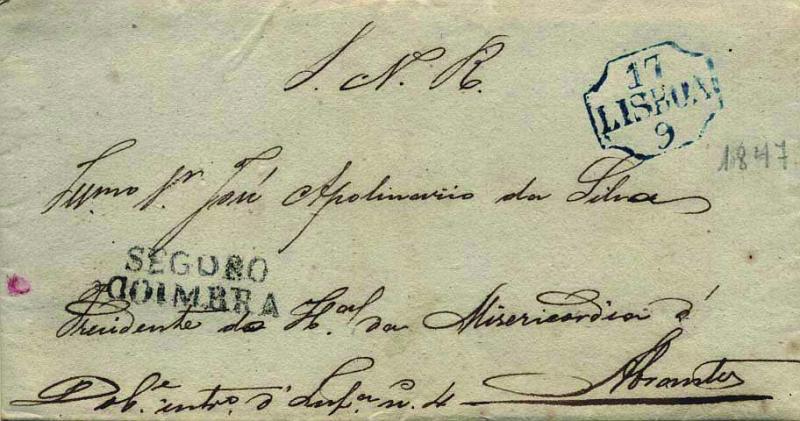 S. N. R.
17
LISBOA
9
1847
Illmo Sr José Apolinario da Silva
SEGURO
COIMBRA
Presidente do Hal da Misericordia d'
n. 4 Abrantes